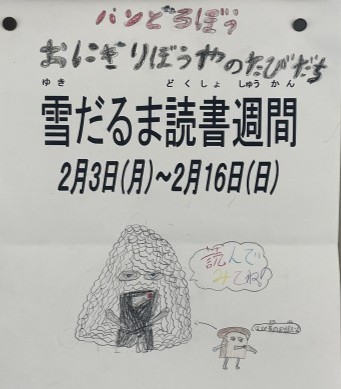 パンどろぼう
おにぎりぼうやのたびだち
ゆき どくしょ しゅうかん
雪だるま読書週間
2月3日(月)～2月16日(日)
読んで
みてね!